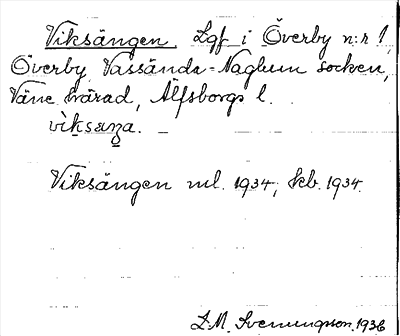 Viksängen Lgf i Överby n:r 1,
Överby, Vassända-Naglum socken,
Väne härad, Älfsborgs l.
vìksæŋa. –
Viksängen ml. 1934, kb. 1934.
L.M. Svenungsson. 1936